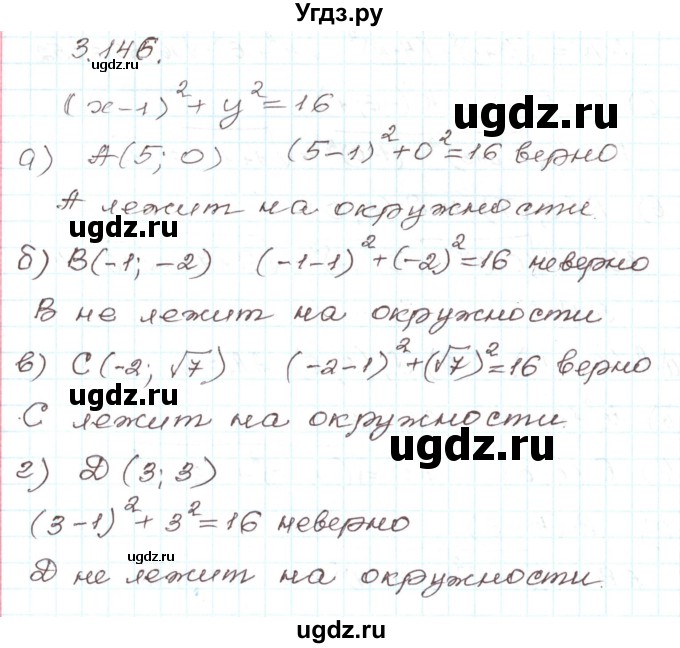 Угдз.ру
3.146.
ugdz.ru
(x-1)² + y² = 16
ugdz.ru
а) A(5; 0) (5-1)² + 0² = 16 верно
А лежит на окружности.
ugdz.ru
б) B(-1; -2) (-1-1)² + (-2)² = 16 неверно
В не лежит на окружности
в) C(-2; √7) (-2-1)² + (√7)² = 16 верно
ugdz.ru
С лежит на окружности.
ugdz.ru
г) Д (3; 3)
(3-1)² + 3² = 16 неверно
ugdz.ru
Д не лежит на окружности.
ugdz.ru